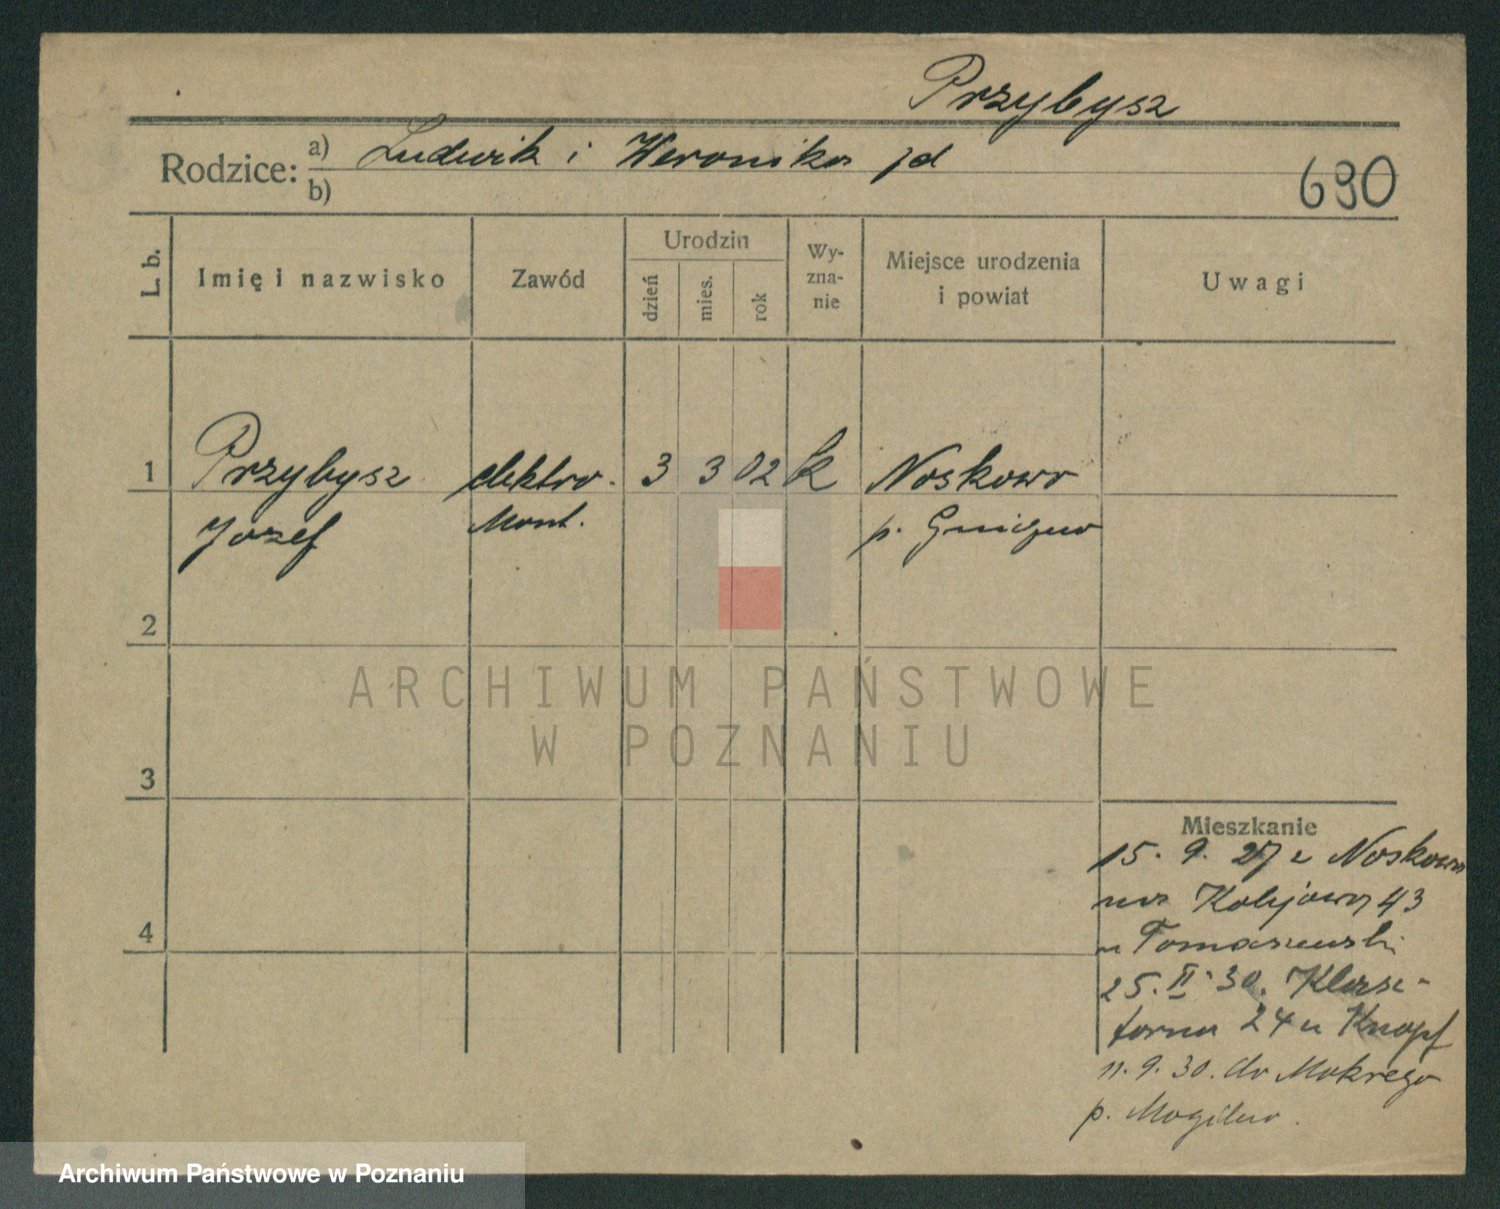 Przybysz
Rodzice: a) Ludwik i Weronika jd
b)
690
L. b.
Imię i nazwisko
Zawód
Urodzin
dzień
mies.
rok
Wy-
zna-
nie
Miejsce urodzenia
i powiat
Uwagi
1 Przybysz elektro. 3 3 02 k Noskowo
Jozef Mont. p.
2
ARCHIWUM PAŃSTWOWE
W POZNANIU
3
Mieszkanie
15. 9. 27 z Noskowa
na 43
u Tomaszewski
25. II. 30. Klasz-
torna 24 u Knopf
11. 9. 30. do Mokrego
p. Mogilno.
4
Archiwum Państwowe w Poznaniu